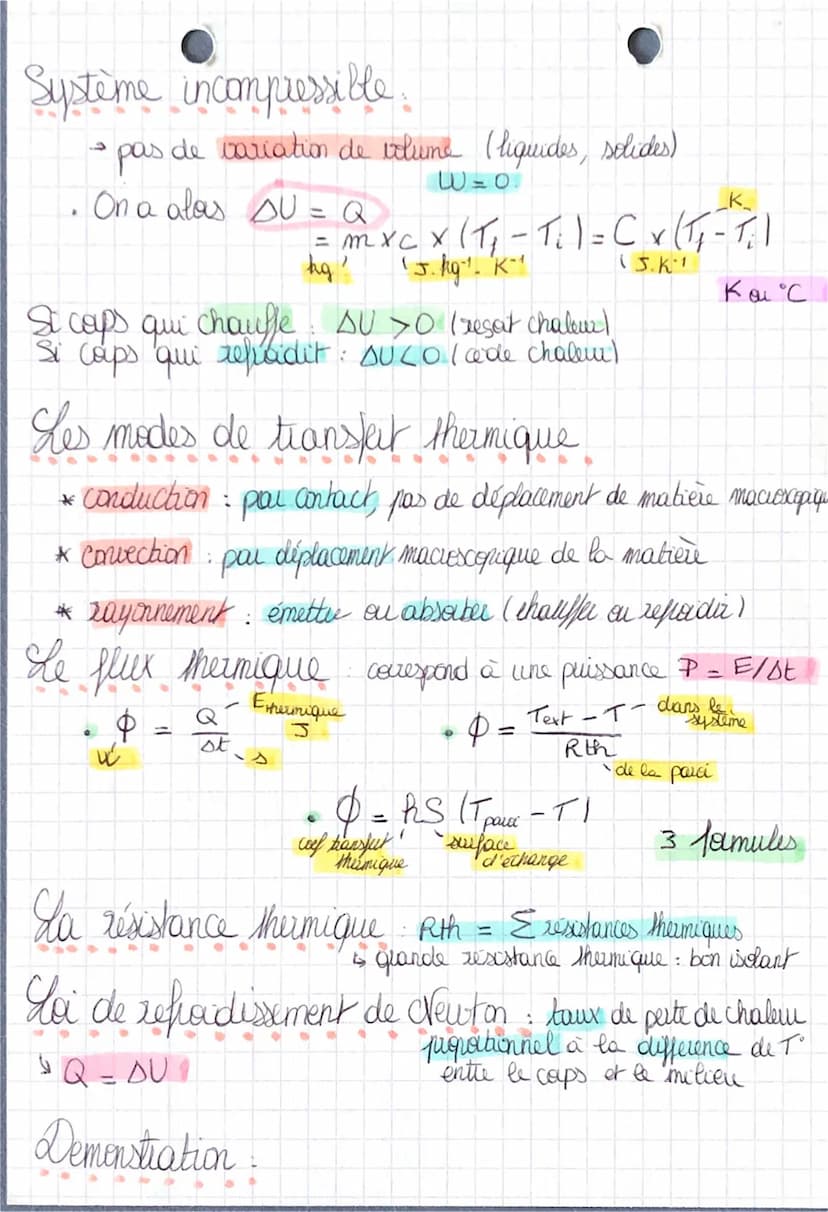 Système incompressible :
→ pas de variation de volume (liquides, solides)
W = 0
• On a alors ΔU = Q
K
= m × c × (Tf - Ti) = C × (Tf - Ti)
kg J.kg⁻¹.K⁻¹ J.K⁻¹
K ou °C
Si corps qui chauffe : ΔU > 0 (reçoit chaleur)
Si corps qui refroidit : ΔU < 0 (cède chaleur)
Les modes de transfert thermique
* conduction : par contact, pas de déplacement de matière macroscopique
* convection : par déplacement macroscopique de la matière
* rayonnement : émettre ou absorber (chauffer ou refroidir)
Le flux thermique : correspond à une puissance P = E/Δt
• ϕ = Q/Δt
Ethermique
J
W
s
• ϕ = (Text - T)/Rth
dans le système
de la paroi
• ϕ = hS (Tparoi - T)
coef transfert thermique
surface d'échange
3 formules
La résistance thermique : Rth = Σ résistances thermiques
↳ grande résistance thermique : bon isolant
Loi de refroidissement de Newton : taux de perte de chaleur
proportionnel à la différence de T°
entre le corps et le milieu
↳ Q = ΔU
Demonstration :